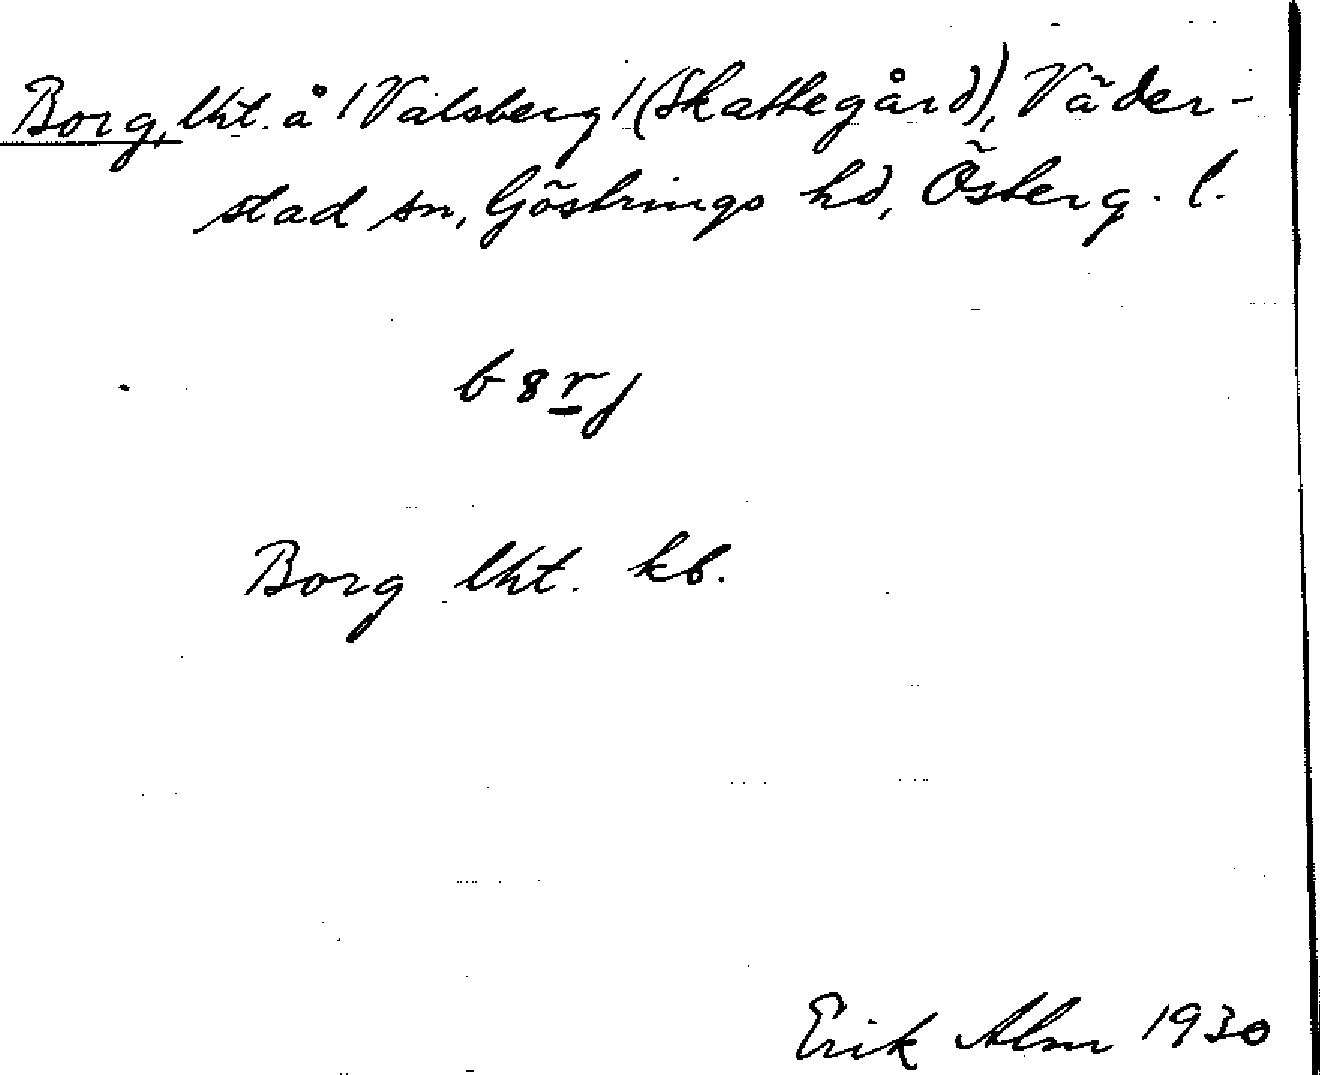 Borg, lht. å /Valsberg/ (Skattegård), Väder-
stad sn, Göstrings hd, Österg. l.
b8rj
Borg lht. kb.
Erik Alm 1930